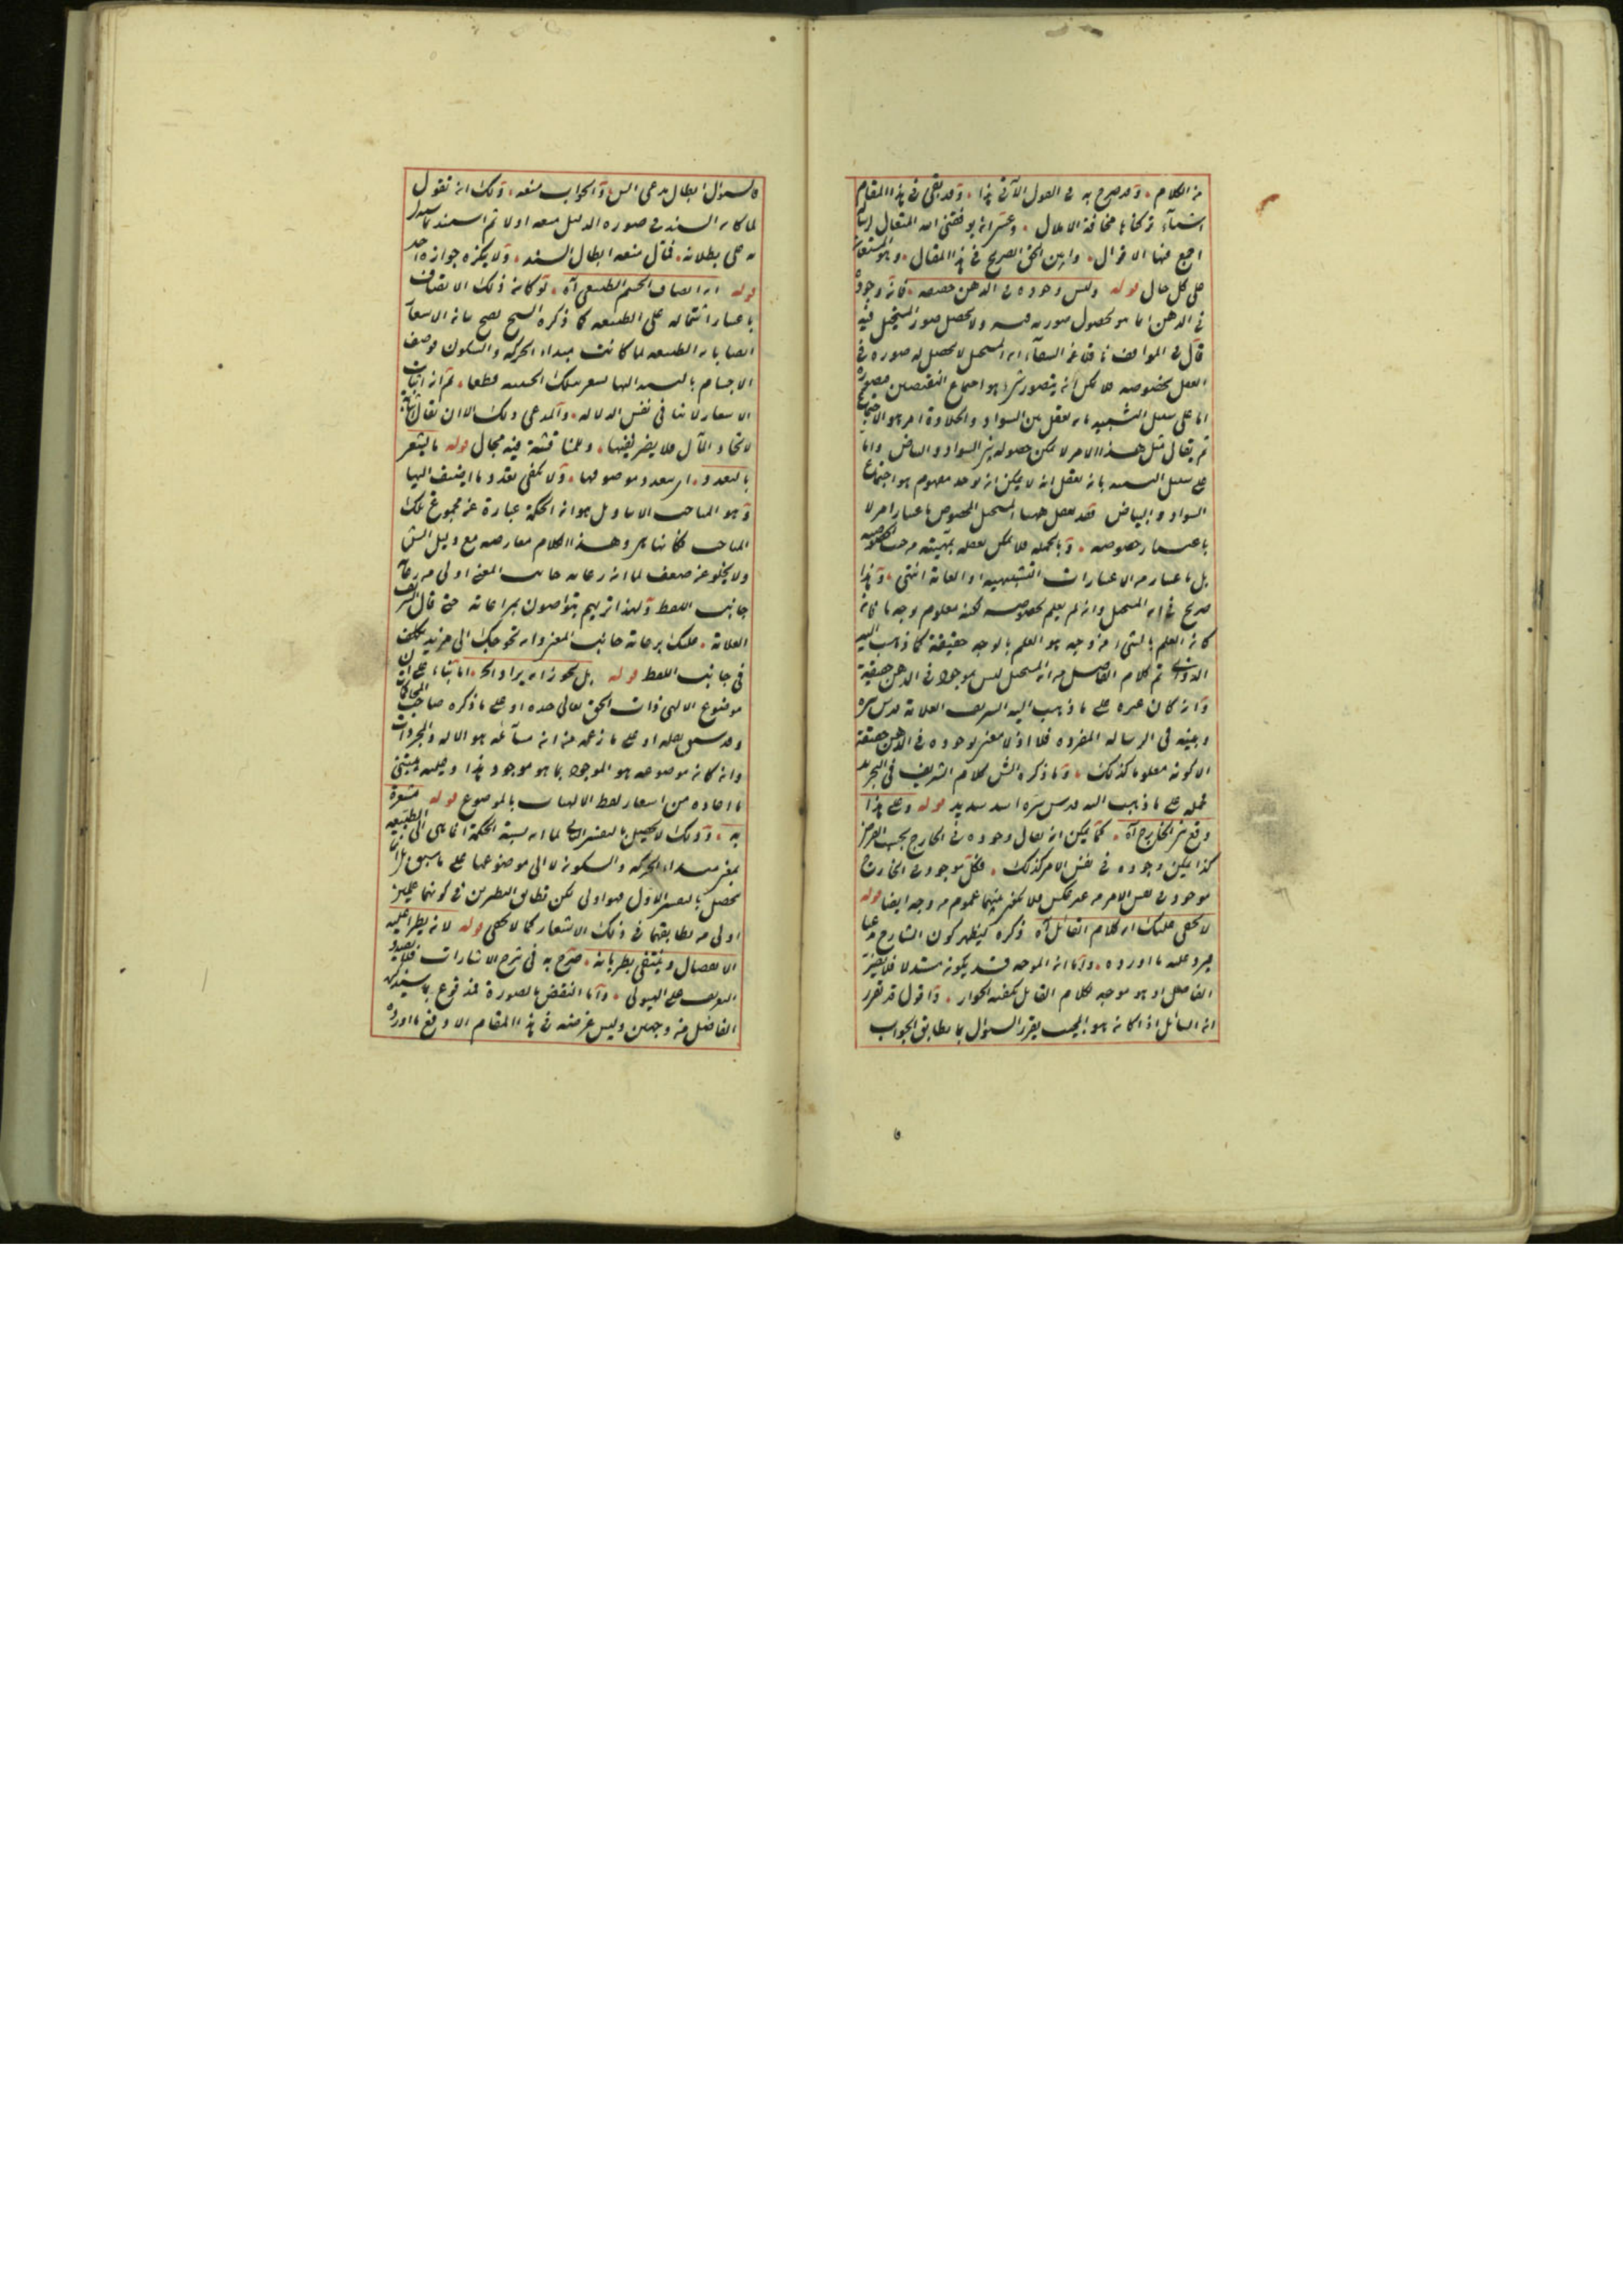 من الكلام وقد صرح به في القول الآتي هذا وقد بقي في هذا المقام
اشياء تركناها مخافة الاملال وعسى ان يوفقني الله المتعال
اجمع فيها الاقوال وابين الحق الصريح في هذا المقال وهو المستعان
على كل حال قوله وليس وجوده في الذهن حقيقة فانه وجود
في الذهن انما هو بحصول صورته فيه ولا يحصل صور المستحيل فيه
قال في المواقف ناقلا عن الشفاء ان المستحيل لا يحصل له صورة في
العقل بخصوصه فلا يمكن ان يتصور شيء هو اجتماع النقيضين فتصوره
اما على سبيل التشبيه بان يعقل بين السواد والحلاوة امر هو الاجتماع
ثم يقال مثل هذا الامر لا يمكن حصوله بين السواد والبياض واما
على سبيل النفي بانه يعقل انه لا يمكن ان يوجد مفهوم هو اجتماع
السواد والبياض فقد يعقل ههنا المستحيل المخصوص باعتبار امر لا
باعتبار خصوصه وبالجملة فلا يمكن تعقله بماهيته من حيث خصوصه
بل باعتبار من الاعتبارات التشبيهية او العامة انتهى وهذا
صريح في ان المستحيل وان لم يعلم بخصوصه لكنه معلوم بوجه ما فانه
كان العلم بالشيء من وجه هو العلم بالوجه حقيقة كما ذهب اليه
الدواني تم كلام الفاضل من ان المستحيل ليس بموجود في الذهن حقيقة
وان كان غيره على ما ذهب اليه الشريف العلامة قدس سره
وبينه في الرسالة المفردة فلا اذ لا معنى لوجوده في الذهن حقيقة
الا كونه معلوما كذلك وما ذكره الش كلام الشريف في التجريد
فحمله على ما ذهب اليه قدس سره اسد سديد قوله وعلى هذا
وقع في الخارج آه كما يمكن ان يقال وجوده في الخارج بحسب الفرض
كذا يمكن وجوده في نفس الامر كذلك فكل موجود في الخارج
موجود في نفس الامر من غير عكس فلا يكون بينهما عموم من وجه ايضا قوله
لا يخفى عليك ان كلام القائل آه ذكره ليظهر كون الشارح مدعيا
فيرد عليه ما اورده واما ان الموجه قد يكون مستدلا فلا يضر
الفاضل اذ هو موجه لكلام القائل يكفيه الجواز واقول قد تقرر
ان السائل اذا كان هو المجيب يقرر السؤال بما يطابق الجواب
فالسؤال ابطال مدعى الش والجواب منعه ولك ان تقول
لما كان السند في صورة الدليل منعه اولا ثم اسند
على بطلانه فتأمل منعه ابطال السند ولا يكره جوازه احد
قوله ان اتصاف الجسم الطبيعي آه لو كان ذلك الاتصاف
باعتبار اشتماله على الطبيعة كما ذكره الشيخ يصح بانه الاشعار
ايضا بان الطبيعة لما كانت مبداء الحركة والسكون فوصف
الاجسام بالنسبة اليها يشعر بتلك الحيثية قطعا ثم ان اثبات
الاشعار لا ينافي نفس الدلالة والمدعى ذلك الا ان يقال
لاتحاد المآل فلا يضر نفيها وللمناقشة فيه مجال قوله ما يشعر
بالتعدد اي بتعدد موصوفها ولا يكفي تعدد ما اضيف اليها
وهو المباحث الا بتاويل هو ان الحكمة عبارة عن مجموع تلك
المباحث فكأنها هي وهذا الكلام معارضة مع دليل الش
ولا يخلو عن ضعف لما ان رعاية جانب المعنى اولى من رعاية
جانب اللفظ ولهذا تريهم يتواصون بمراعاته حتى قال الشريف
العلامة عليك برعاية جانب المعنى وان تحوجك الى مزيد تكلف
في جانب اللفظ قوله بل يجوز ان يراد الخ اما بناء على ان
موضوع الالهي ذات الحق تعالى وحده او على ما ذكره صاحب المحاكمات
وقد سبق نقله او على ما زعمه من ان مسائله هو الاله والمجردات
وان كان موضوعه هو الموجود بما هو موجود هذا وعليه يبتني
ما افاده من اشعار لفظ الالهيات بالموضوع قوله مشعرة
به وذلك لا يحصل بالتفسير الثاني لما ان نسبة الحكمة انما هي الى الطبيعة
بمعنى مبداء الحركة والسكون لا الى موضوعها على ما سبق
يحصل بالتفسير الاول فهو اولى لكن تطابق النظرين في كونهما علمين
اولى من تطابقهما في ذلك الاشعار كما لا يخفى قوله لانه يطرأ عليه
الانفصال وينتفي بطريانه صرح به في شرح الاشارات فلا يصدق
التعريف على الهيولى واما النقض بالصورة فمدفوع بما سيذكره
الفاضل من وجهين وليس غرضه في هذا المقام الا دفع ما اورده